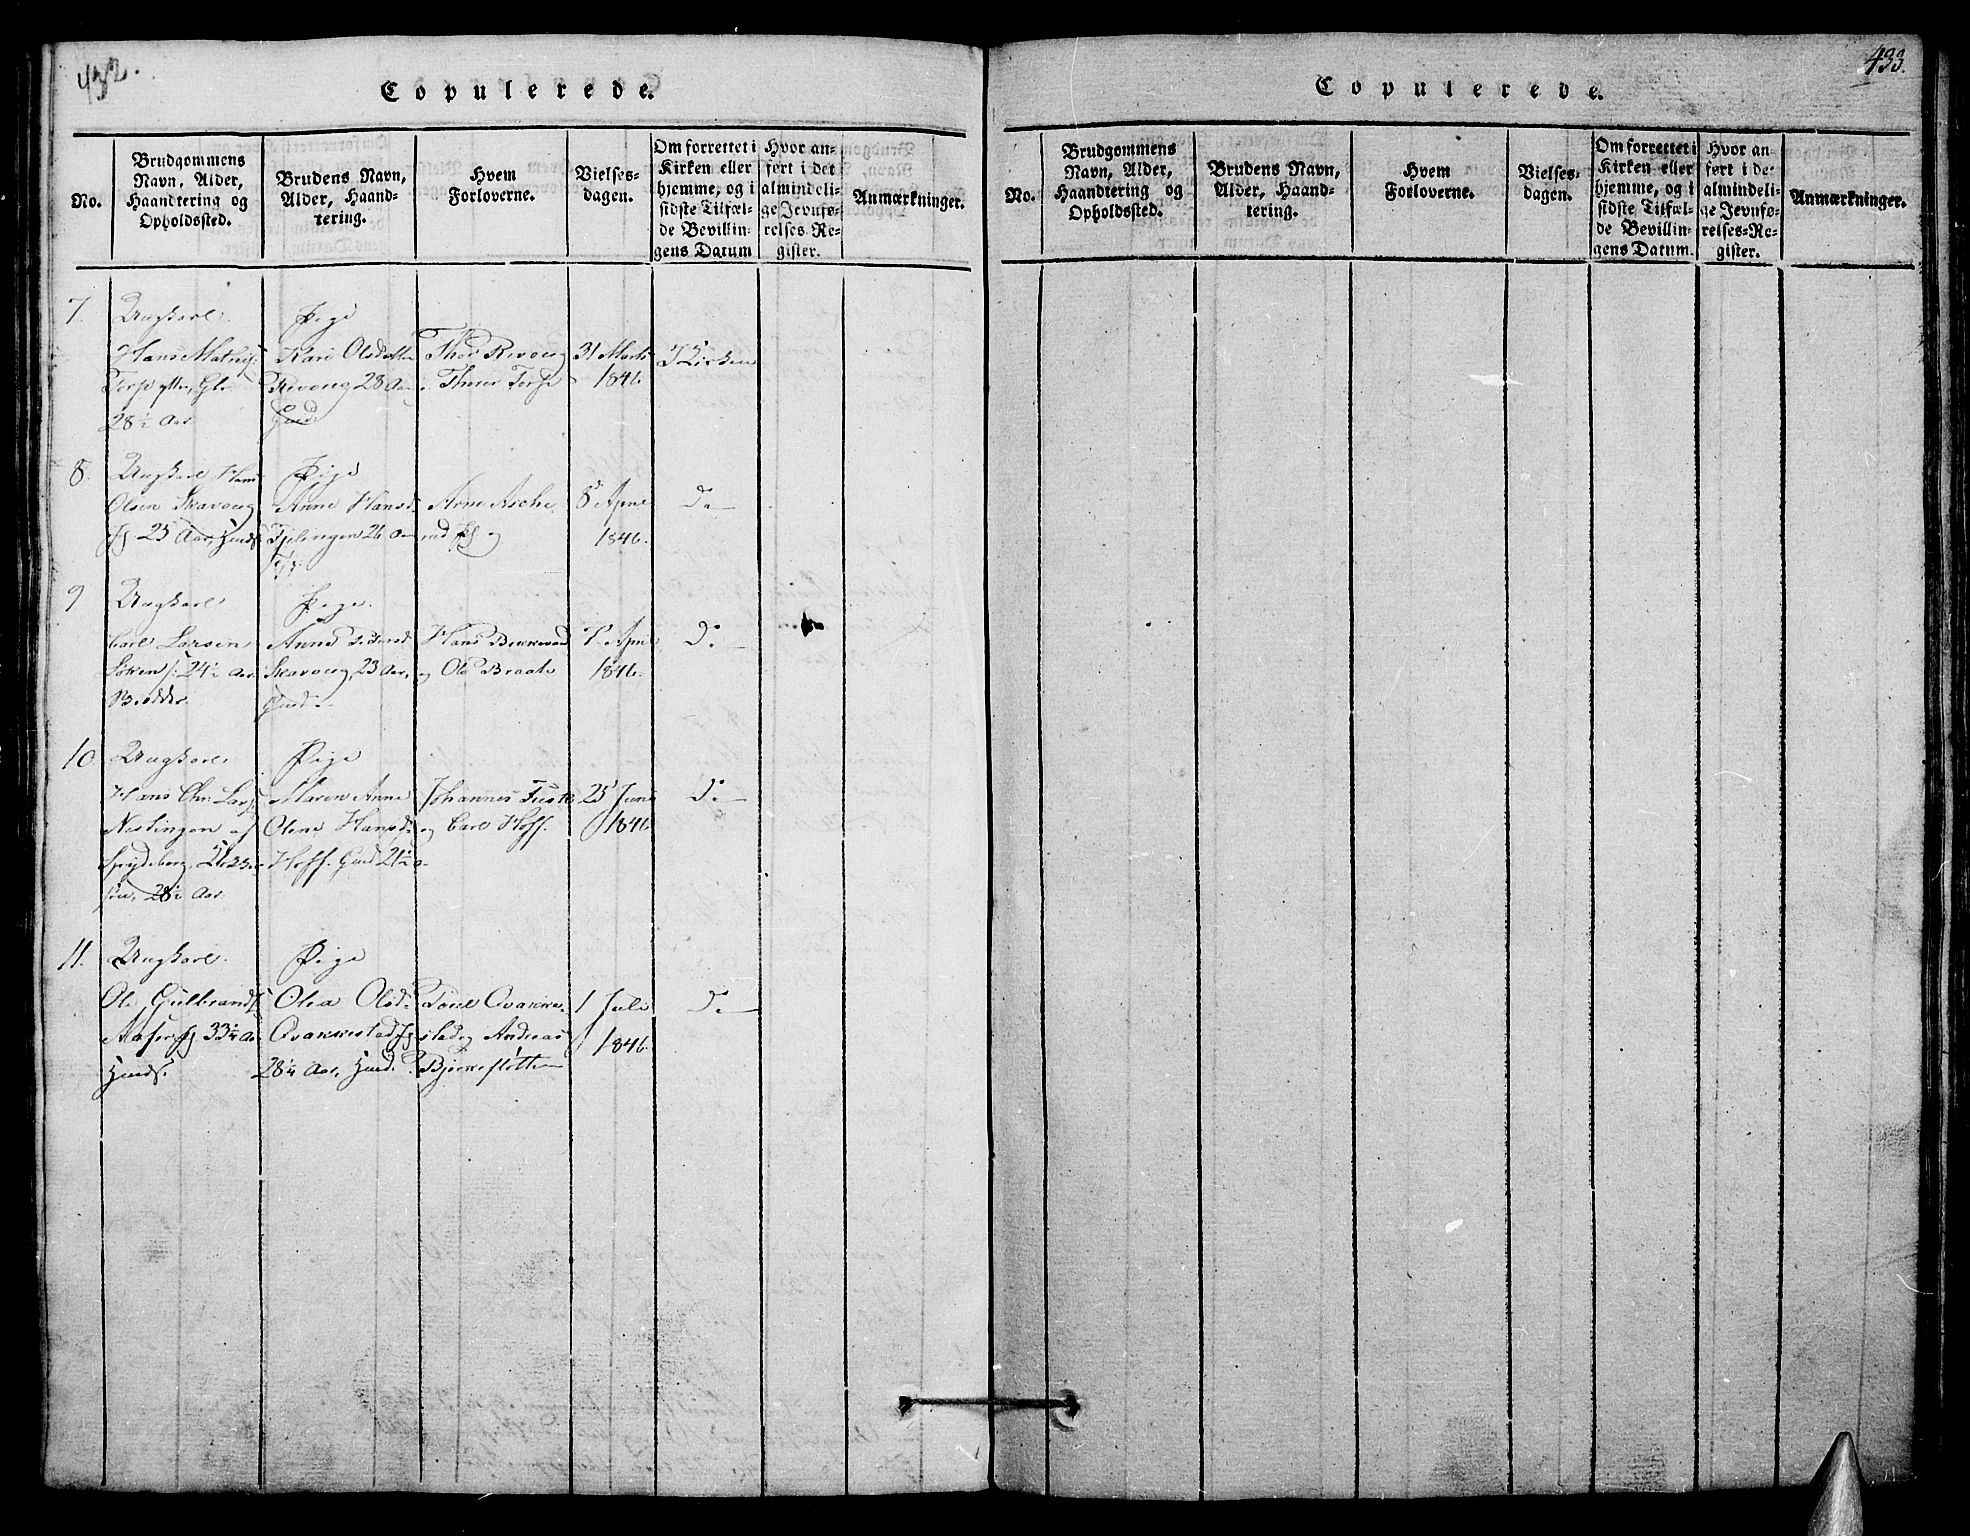 432.
Copulerede.
No.
Brudgommens
Navn, Alder,
Haandtering og
Opholdssted.
Brudens Navn,
Alder, Haand-
tering.
Hvem
Forloverne.
Vielses-
dagen.
Om forrettet i
Kirken eller
hjemme, og i
sidste Tilfæl-
de Bevillin-
gens Datum
Hvor an-
ført i det
almindeli-
ge Jevnfø-
relses-Re-
gister.
Anmærkninger.
7.
Ungkarl
Hans
Torp
28½ Aar
Pige
Kari Olsdatter
28 Aar
Thor
Torp
31 Marts
1846.
I Kirken
8.
Ungkarl Hans
Olsen Skavoug
25 Aar,
Pige
Anne Hansd.
26 Aar
Arne Asche
rud og
8 April
1846.
Do
9
Ungkarl
Carl Larsen
24½ Aar
Pige.
Anne
Skavoug, 23 Aar,
Hans
og Ole Braate
April
1846.
Do
10
Ungkarl
Hans Chr. Lars
Nestingen af
Spydeberg,
28½ Aar
Pige
Maren Anne
Oline Hansd.
Hoff. 21½
Johannes
og Carl Hoff.
25 Juni
1846
Do
11.
Ungkarl.
Ole Gulbrands
33½ Aar
Pige
Olea Olsd.
Ovakkestad
28¼ Aar,
Ovakke-
stad og Andreas
1 Juli
1846.
Do
433.
Copulerede.
No.
Brudgommens
Navn, Alder,
Haandtering og
Opholdssted.
Brudens Navn,
Alder, Haand-
tering.
Hvem
Forloverne.
Vielses-
dagen.
Om forrettet i
Kirken eller
hjemme, og i
sidste Tilfæl-
de Bevillin-
gens Datum.
Hvor an-
ført i det
almindeli-
ge Jevnfø-
relses-Re-
gister.
Anmærkninger.